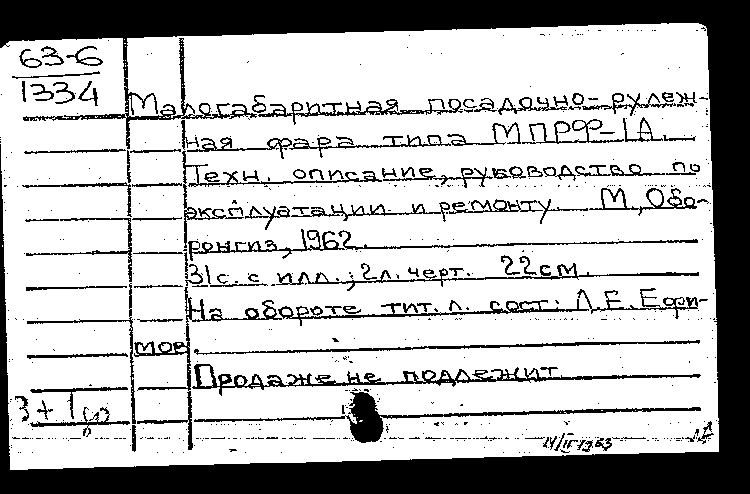 63-6
1334
Малогабаритная посадочно-рулеж-
ная фара типа МПРФ-1А.
Техн. описание, руководство по
эксплуатации и ремонту. М., Обо-
ронгиз, 1962.
31 с. с илл.; 2 л. черт. 22 см.
На обороте тит. л. сост: Л.Е. Ефи-
мов.
Продаже не подлежит
3 + 1
14/II 1963